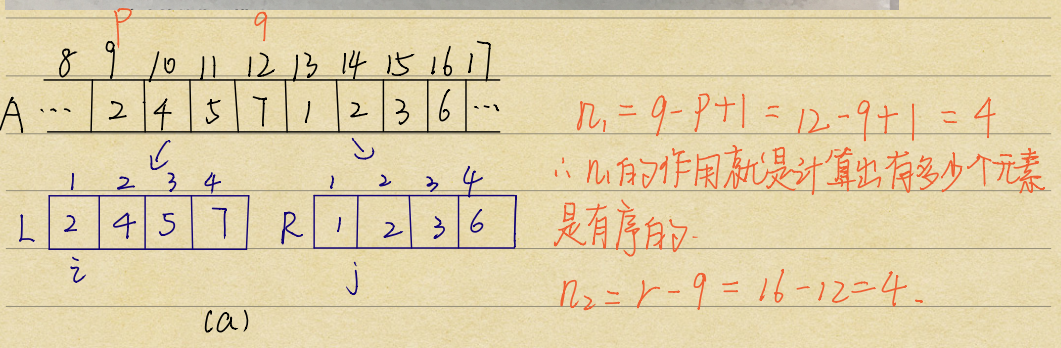 p q
8 9 10 11 12 13 14 15 16 17
A ... 2 4 5 7 1 2 3 6 ...
1 2 3 4 1 2 3 4
L 2 4 5 7 R 1 2 3 6
i j
(a)
n₁ = q-p+1 = 12-9+1 = 4
∴ n₁的作用就是计算出有多少个元素
是有序的.
n₂ = r-q = 16-12=4.